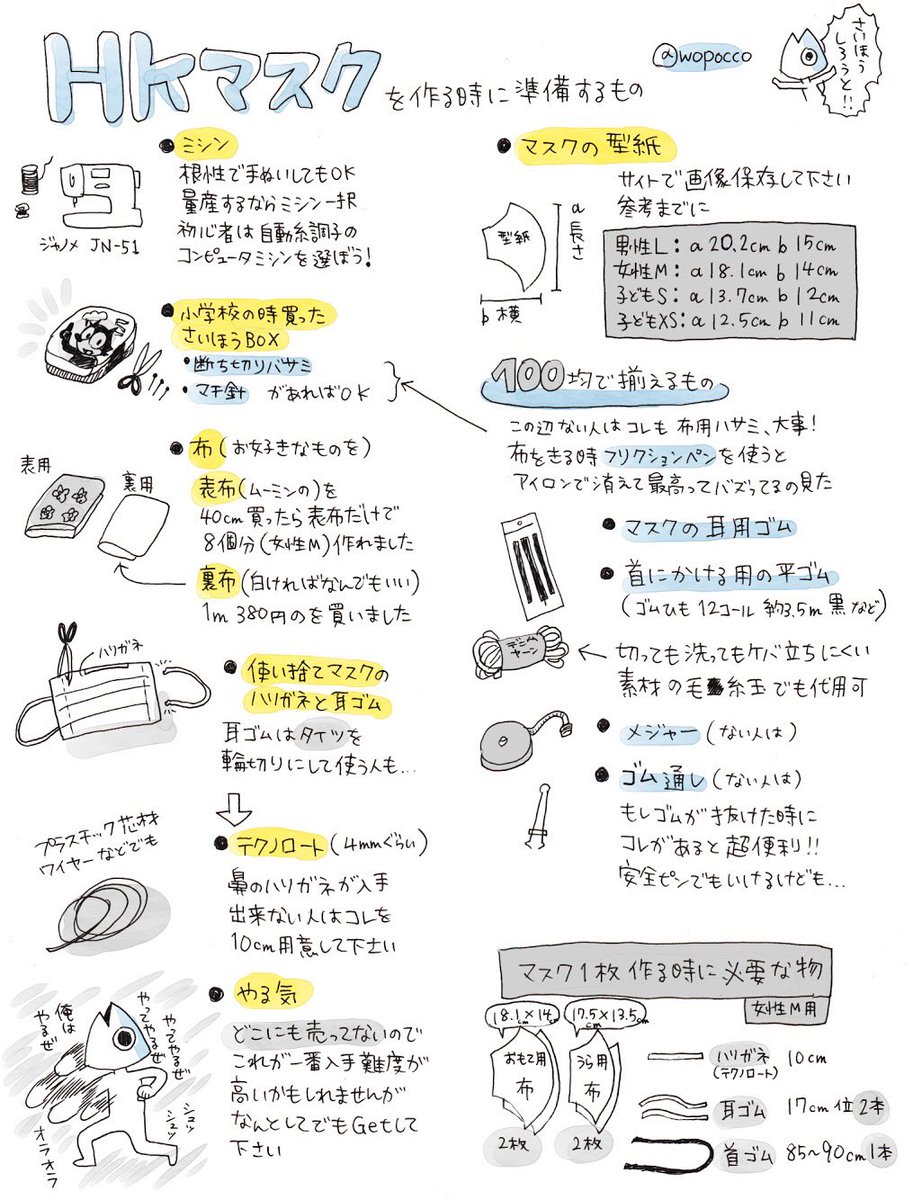 HKマスクを作る時に準備するもの
@wopocco
さいほう
しろうと!!
●ミシン
根性で手ぬいしてもOK
量産するならミシン一択
初心者は自動糸調子の
コンピュータミシンを選ぼう!
ジャノメ JN-51
●小学校の時買った
さいほうBOX
・断ち切りバサミ
・マチ針 があればOK
●布(お好きなものを)
表用
裏用
表布(ムーミンの)を
40cm買ったら表布だけで
8個分(女性M)作れました
裏布(白ければなんでもいい)
1m 380円のを買いました
ハリガネ
●使い捨てマスクの
ハリガネと耳ゴム
耳ゴムはタイツを
輪切りにして使う人も…
プラスチック芯材
ワイヤーなどでも
●テクノロート(4mmぐらい)
鼻のハリガネが入手
出来ない人はコレを
10cm用意して下さい
●やる気
どこにも売ってないので
これが一番入手難度が
高いかもしれませんが
なんとしてでもGetして
下さい
俺は
やるぜ
やってやるぜ
やってやるぜ
シュッ
シュッ
オラオラ
●マスクの型紙
サイトで画像保存して下さい
参考までに
型紙
a
長さ
b 横
男性L:a 20.2cm b 15cm
女性M:a 18.1cm b 14cm
子どもS:a 13.7cm b 12cm
子どもXS:a 12.5cm b 11cm
100均で揃えるもの
この辺ない人はコレも 布用ハサミ、大事!
布をきる時フリクションペンを使うと
アイロンで消えて最高ってバズってるの見た
●マスクの耳用ゴム
●首にかける用の平ゴム
(ゴムひも 12コール 約3.5m 黒など)
デニム
ヤーン
切っても洗ってもケバ立ちにくい
素材の毛糸玉でも代用可
●メジャー(ない人は)
●ゴム通し(ない人は)
もしゴムが抜けた時に
コレがあると超便利!!
安全ピンでもいけるけども…
マスク1枚作る時に必要な物
女性M用
18.1×14cm
おもて用
布
2枚
17.5cm×13.5cm
うら用
布
2枚
ハリガネ 10cm
(テクノロート)
耳ゴム 17cm位 2本
首ゴム 85〜90cm 1本